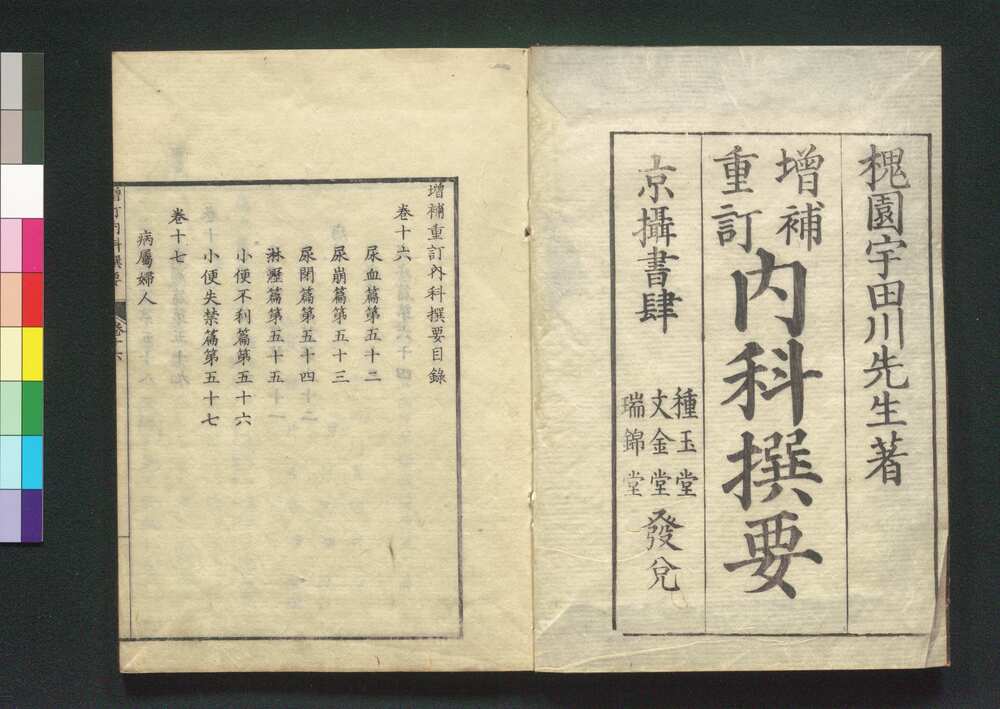 槐園宇田川先生著
增補
重訂
内科撰要
京攝書肆
種玉堂
文金堂
瑞錦堂
發兌
增補重訂内科撰要目錄
卷十六
尿血篇第五十二
尿崩篇第五十三
尿閉篇第五十四
淋瀝篇第五十五
小便不利篇第五十六
小便失禁篇第五十七
卷十七
病屬婦人
增訂内科撰要
卷十六